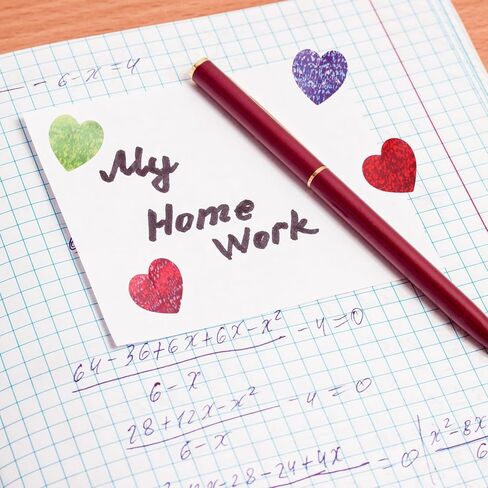 6-x = 4
My
Home
Work
64-36+6x+6x-x² -4=0
6-x
28+12x-x² -4=0
6-x
x²-8x
-28-24+4x = 0
6